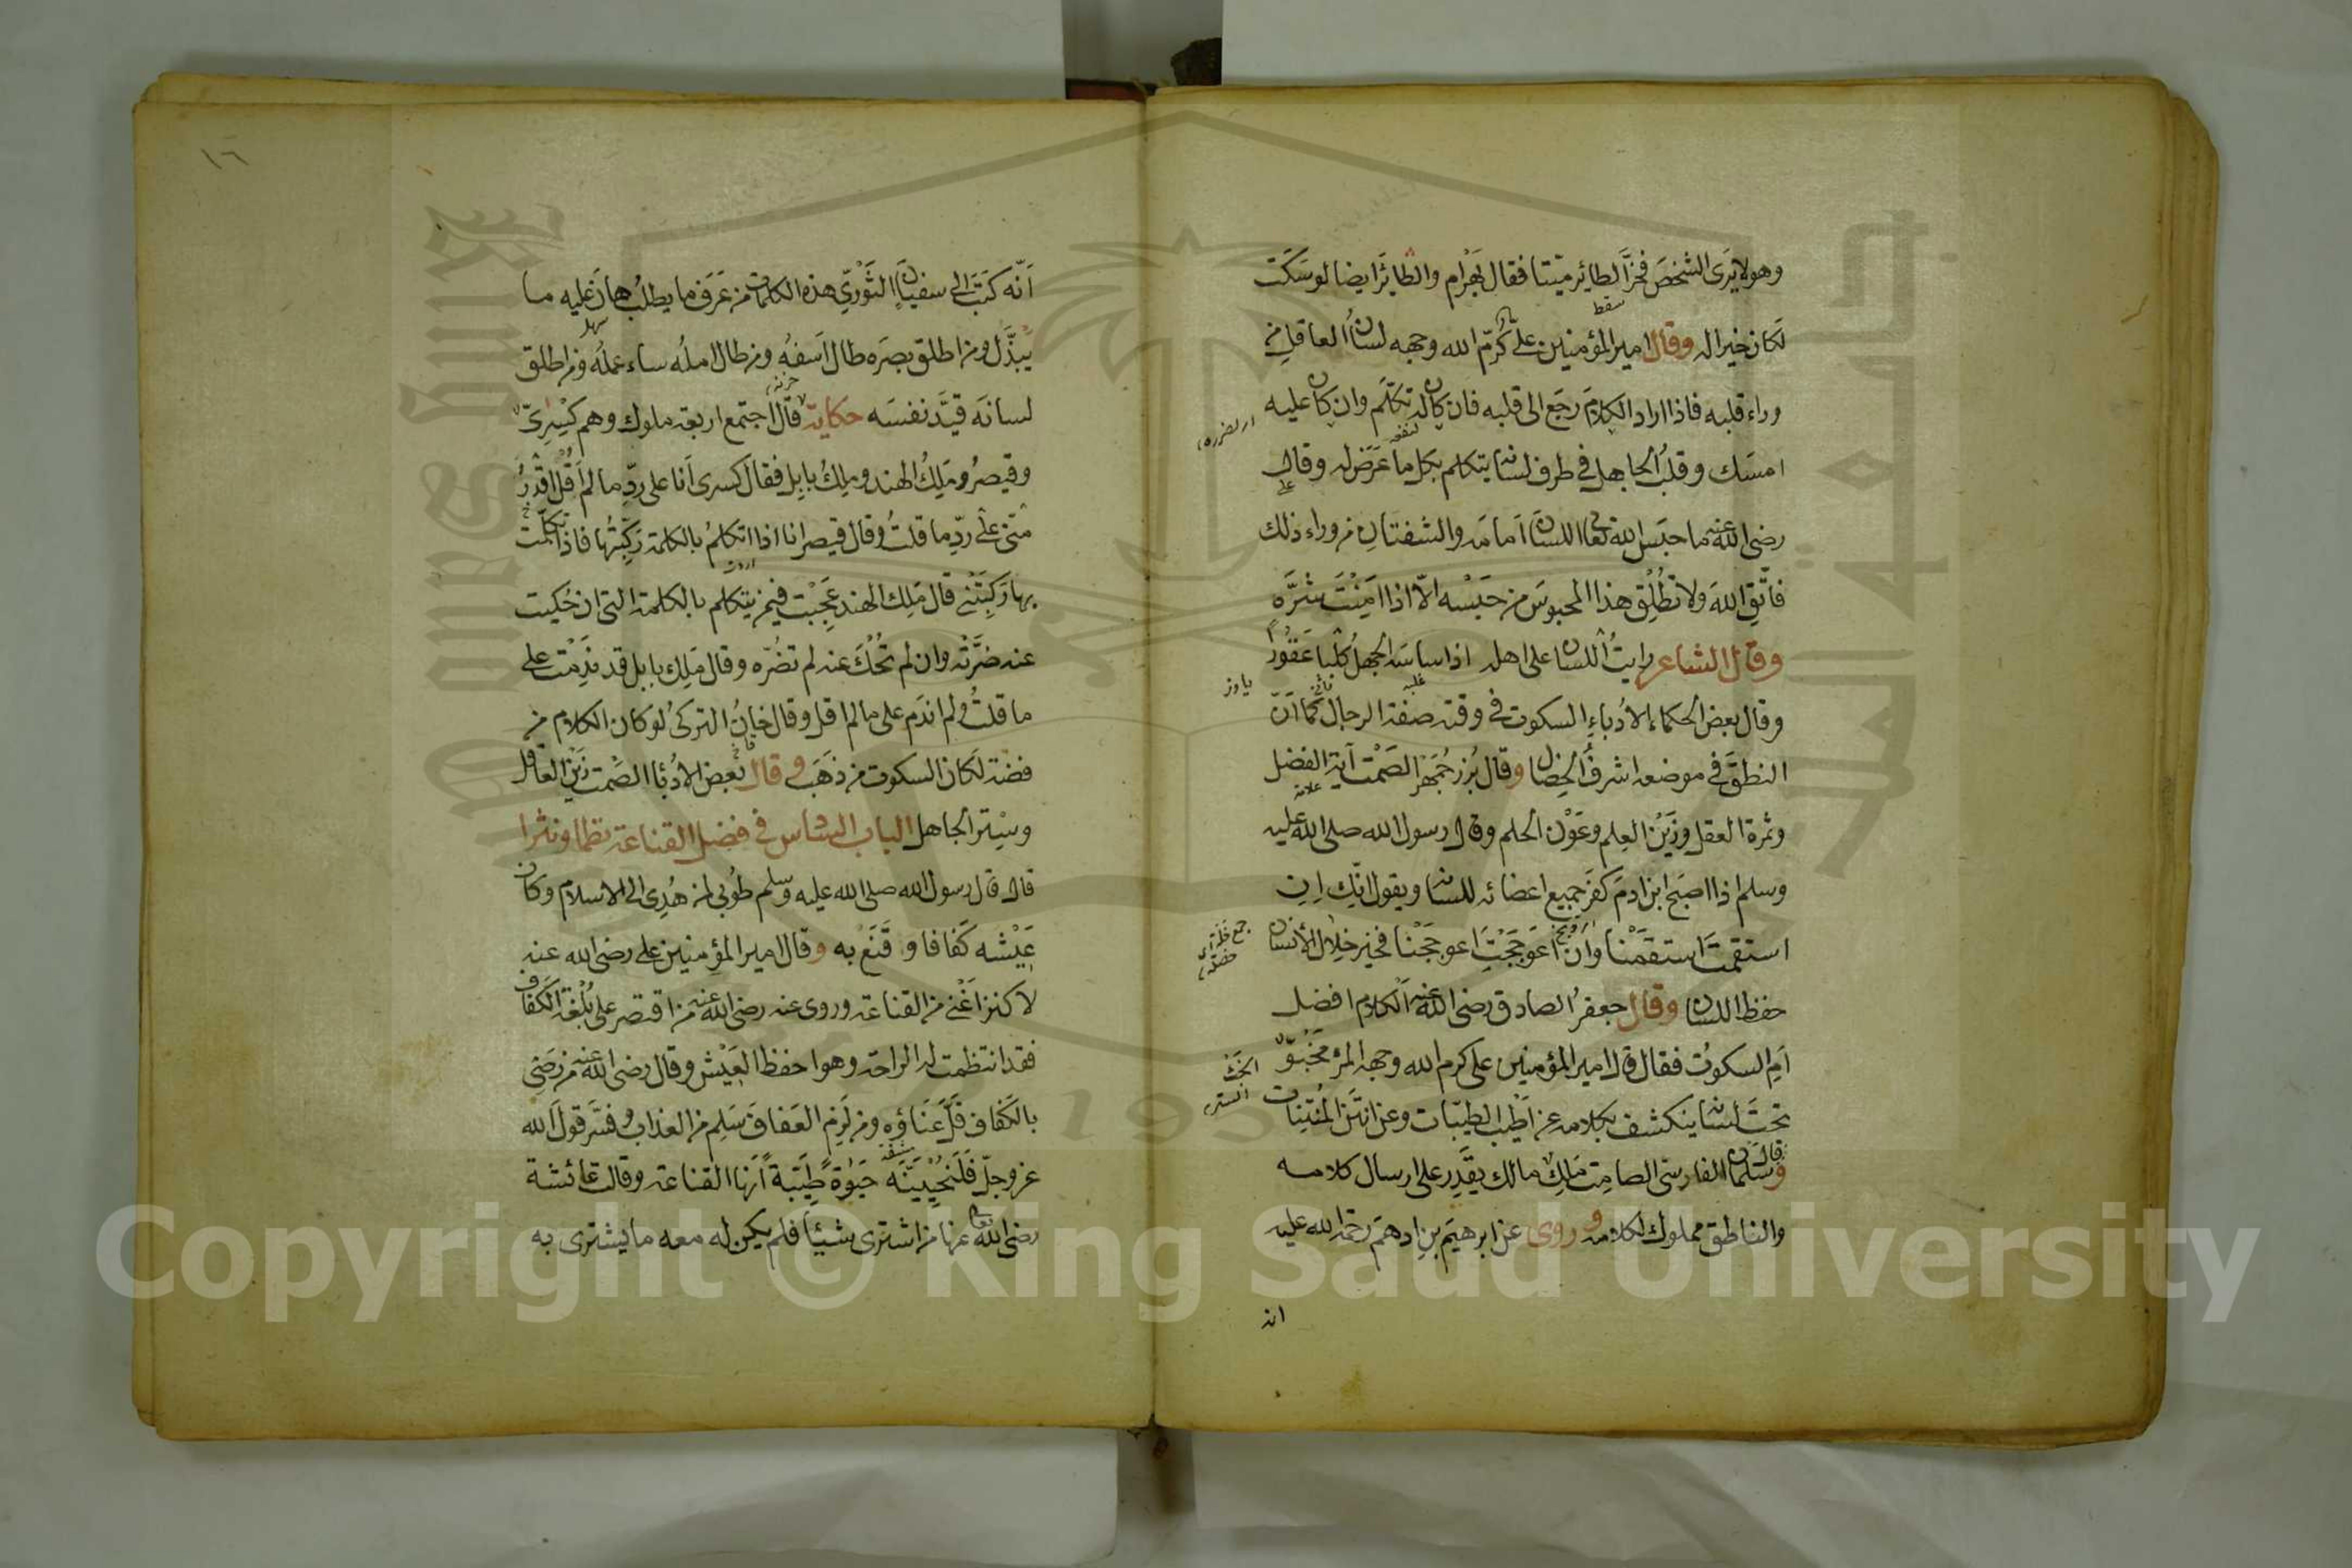 وهو لا يرى الشخص فخرّ الطائر ميّتا فقال بهرام والطائر ايضا لو سكت
سقط
لكان خيرا له وقال امير المؤمنين على كرّم الله وجهه لسان العاقل من
وراء قلبه فاذا اراد الكلام رجع الى قلبه فان كان له تكلّم وان كان عليه
امسك وقلب الجاهل في طرف لسانه يتكلم بكل ما عرض له وقال
رضى الله عنه ما حبس الله تعالى اللسان امامه والشفتان من وراء ذلك
فاتّق الله ولا تطلق هذا المحبوس من حبسه الّا اذا امنت شرّه
وقال الشاعر رايت اللسان على اهله اذا ساسه الجهل كلبا عقورا
وقال بعض الحكماء الادباء السكوت في وقته صفة الرجال كما انّ
النطق في موضعه اشرف الخصال وقال بزرجمهر الصمت آية الفضل
علامة
وثمرة العقل وزين العلم وعون الحلم وقال رسول الله صلى الله عليه
وسلم اذا اصبح ابن ادم كفر جميع اعضائه للسان ويقول انك ان
استقمت استقمنا وان اعوججت اعوججنا فخير خلال الانسان
حفظ اللسان وقال جعفر الصادق رضى الله عنه الكلام افضل
ام السكوت فقال قال امير المؤمنين على كرم الله وجهه المرء مخبوّ
تحت لسانه ينكشف بكلامه عن اطيب الطيبات وعن انتن المنتنات
وقال سلمان الفارسى الصامت ملك مالك يقدر على ارسال كلامه
والناطق مملوك لكلامه وروى عن ابرهيم بن ادهم رحمة الله عليه
انه
١٦
انّه كتب الى سفيان الثوري هذه الكلمات من عرف ما يطلب هان عليه ما
سهل
يبذل ومن اطلق بصره طال اسفه ومن طال امله ساء عمله ومن اطلق
لسانه قيّد نفسه حكاية قال اجتمع اربعة ملوك وهم كسرىّ
وقيصر وملك الهند وملك بابل فقال كسرى انا على ردّ ما لم اقل اقدر
منّى على ردّ ما قلت وقال قيصر انا اذا اتكلم بالكلمة ركبتها فاذا تكلّمت
بها ركبتنى قال ملك الهند عجبت فيمن يتكلم بالكلمة التى ان حكيت
عنه ضرّته وان لم تحك عنه لم تضرّه وقال ملك بابل قد ندمت على
ما قلت ولم اندم على ما لم اقل وقال خان التركى لو كان الكلام من
فضة لكان السكوت من ذهب وقال بعض الادبا الصمت زين العاقل
وستر الجاهل الباب السادس في فضل القناعة نظما ونثرا
قال قال رسول الله صلى الله عليه وسلم طوبى لمن هدى الى الاسلام وكان
عيشه كفافا وقنع به وقال امير المؤمنين على رضى الله عنه
لا كنز اغنى من القناعة وروى عنه رضى الله عنه من اقتصر على بلغة الكفاف
فقد انتظمت له الراحة وهو احفظ العيش وقال رضى الله عنه من رضى
بالكفاف قلّ عناؤه ومن لزم العفاف سلم من العذاب وفسّر قول الله
عز وجلّ فلنحيينّه حيوة طيّبة انها القناعة وقالت عائشة
رضى الله تعالى عنها من اشترى شيئا فلم يكن له معه ما يشترى به
Copyright © King Saud University
King Saud University
1957